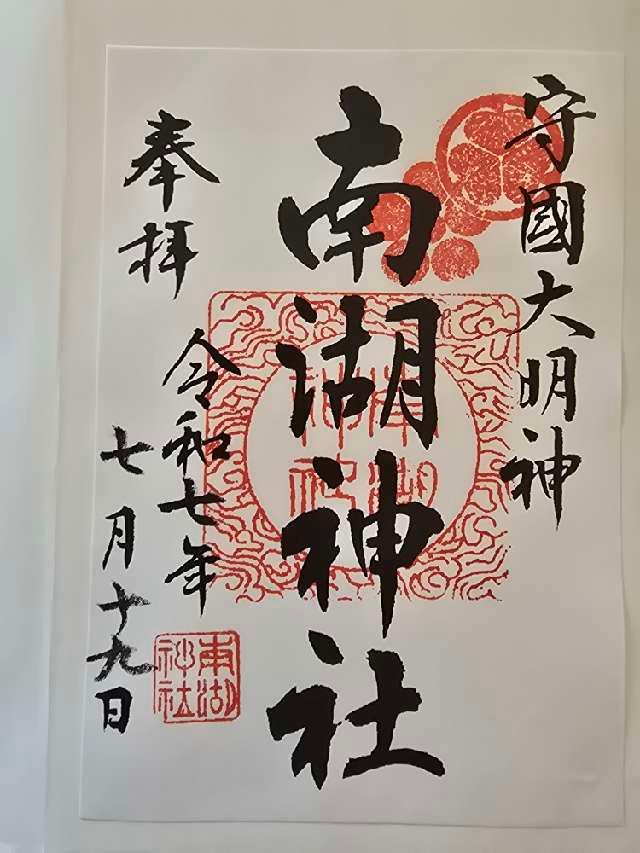 守國大明神
南湖神社
奉拝
令和七年
七月十九日
南湖
神社
南湖
神社